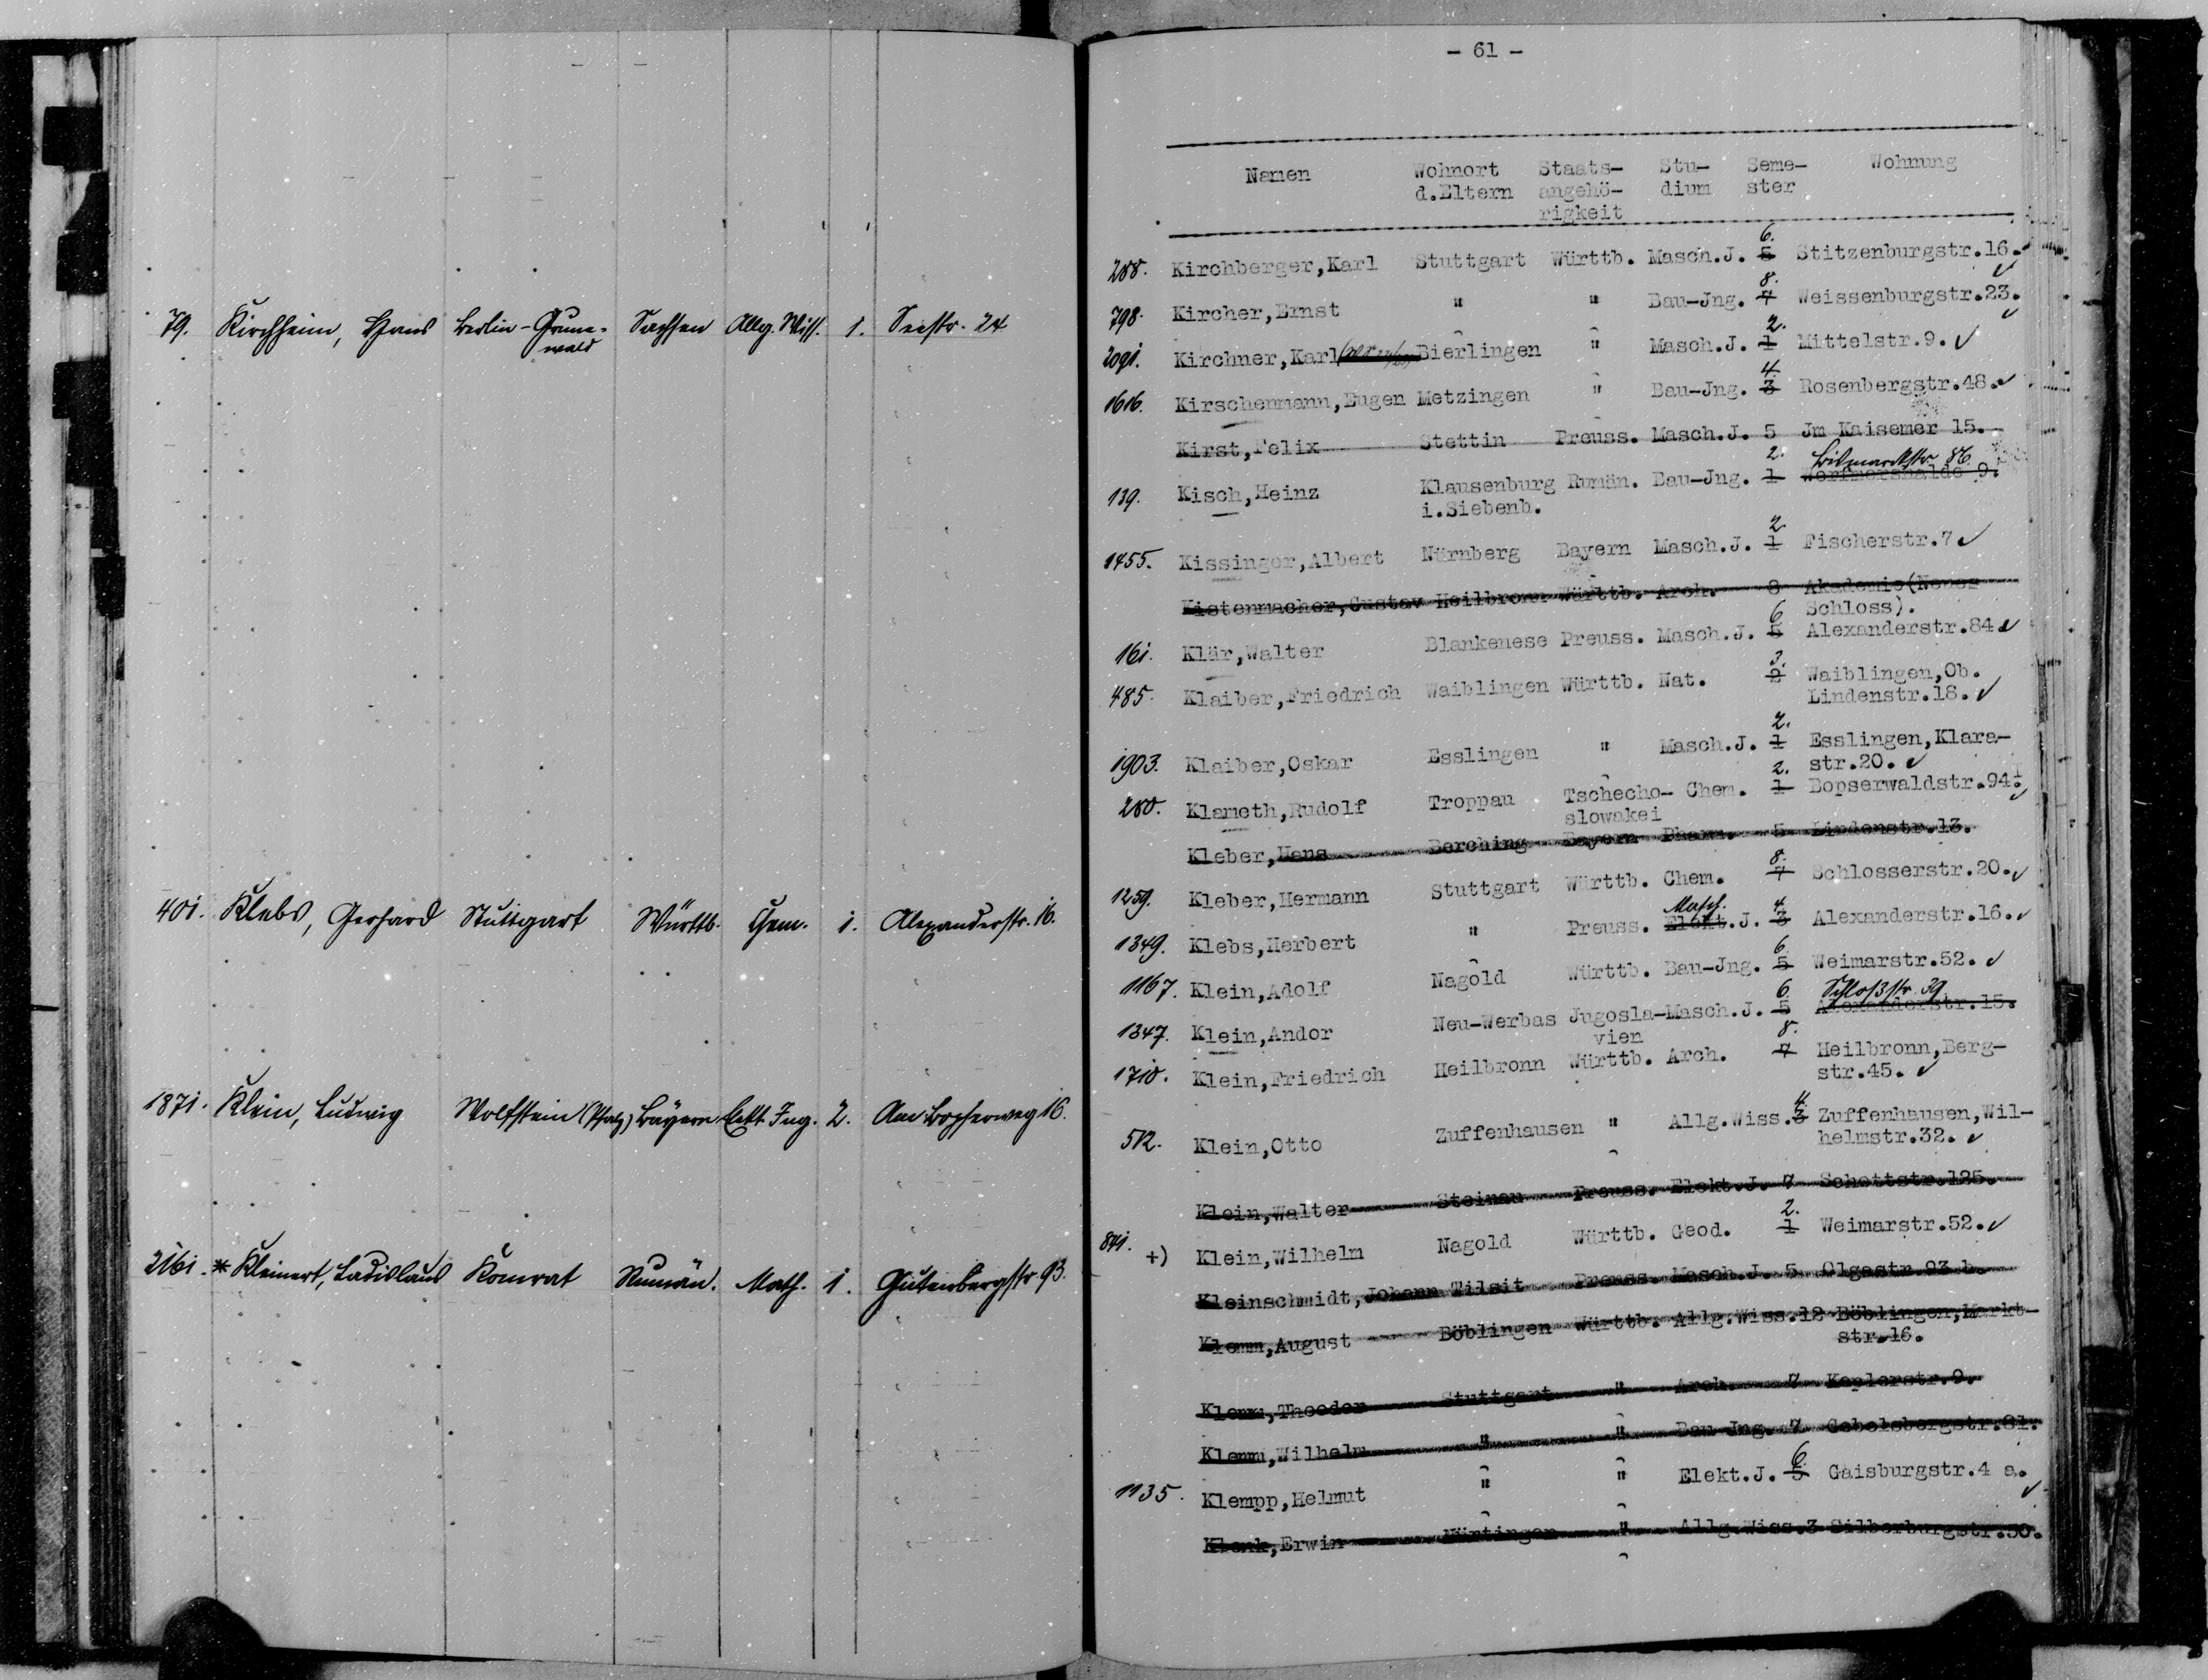 79. Kirchheim, Hans Berlin-Grune- Sachsen Allg. Wiss. 1. Seestr. 24
wald
401. Klebs, Gerhard Stuttgart Württb. Chem. 1. Alexanderstr. 16.
1871. Klein, Ludwig Wolfstein (Pfalz) Bayern Elekt. Ing. 2. Am Bopserweg 16.
2161. * Kleinert, Ladislaus Komrat Rumän. Math. 1. Gutenbergstr. 93.
- 61 -
Namen Wohnort Staats- Stu- Seme- Wohnung
d.Eltern angehö- dium ster
rigkeit
6.
288. Kirchberger,Karl Stuttgart Württb. Masch.J. 5 Stitzenburgstr.16.
8.
798. Kircher,Ernst " " Bau-Jng. 7 Weissenburgstr.23.
2.
2091. Kirchner,Karl Bierlingen " Masch.J. 1 Mittelstr.9.
4.
1616. Kirschenmann,Eugen Metzingen " Bau-Jng. 3 Rosenbergstr.48.
Kirst,Felix Stettin Preuss. Masch.J. 5 Jm Kaisemer 15.
2. Bismarckstr. 86
139. Kisch,Heinz Klausenburg Rumän. Bau-Jng. 1 Werfmershalde 9.
i.Siebenb.
2
1455. Kissinger,Albert Nürnberg Bayern Masch.J. 1 Fischerstr.7
Kistenmacher,Gustav Heilbronn Württb. Arch. 8 Akademie(Neues
Schloss).
6
161. Klär,Walter Blankenese Preuss. Masch.J. 5 Alexanderstr.84
3.
485. Klaiber,Friedrich Waiblingen Württb. Nat. 2 Waiblingen,Ob.
Lindenstr.18.
2.
1903. Klaiber,Oskar Esslingen " Masch.J. 1 Esslingen,Klara-
str.20.
2.
280. Klameth,Rudolf Troppau Tschecho- Chem. 1 Bopserwaldstr.94I.
slowakei
Kleber,Hans Berching Bayern Pharm. 5 Lindenstr.13.
8.
1259. Kleber,Hermann Stuttgart Württb. Chem. 7 Schlosserstr.20.
Masch. 4.
1349. Klebs,Herbert " Preuss. Elekt.J. 3 Alexanderstr.16.
6.
1167. Klein,Adolf Nagold Württb. Bau-Jng. 5 Weimarstr.52.
6. Schloßstr. 39
1347. Klein,Andor Neu-Werbas Jugosla-Masch.J. 5 Alexanderstr.15.
vien
8.
1710. Klein,Friedrich Heilbronn Württb. Arch. 7 Heilbronn,Berg-
str.45.
4.
512. Klein,Otto Zuffenhausen " Allg.Wiss.3 Zuffenhausen,Wil-
helmstr.32.
Klein,Walter Steinau Preuss. Elekt.J. 7 Schottstr.125.
2.
841. +) Klein,Wilhelm Nagold Württb. Geod. 1 Weimarstr.52.
Kleinschmidt,Johann Tilsit Preuss. Masch.J. 5 Olgastr.93 b.
Klemm,August Böblingen Württb. Allg.Wiss.12 Böblingen,Markt-
str.16.
Klemm,Theodor Stuttgart " Arch. 7 Keplerstr.9.
Klemm,Wilhelm " " Bau-Jng. 7 Gebelsbergstr.81.
6.
1135. Klempp,Helmut " " Elekt.J. 5 Gaisburgstr.4 a.
Klenk,Erwin Nürtingen " Allg.Wiss.3 Silberburgstr.50.